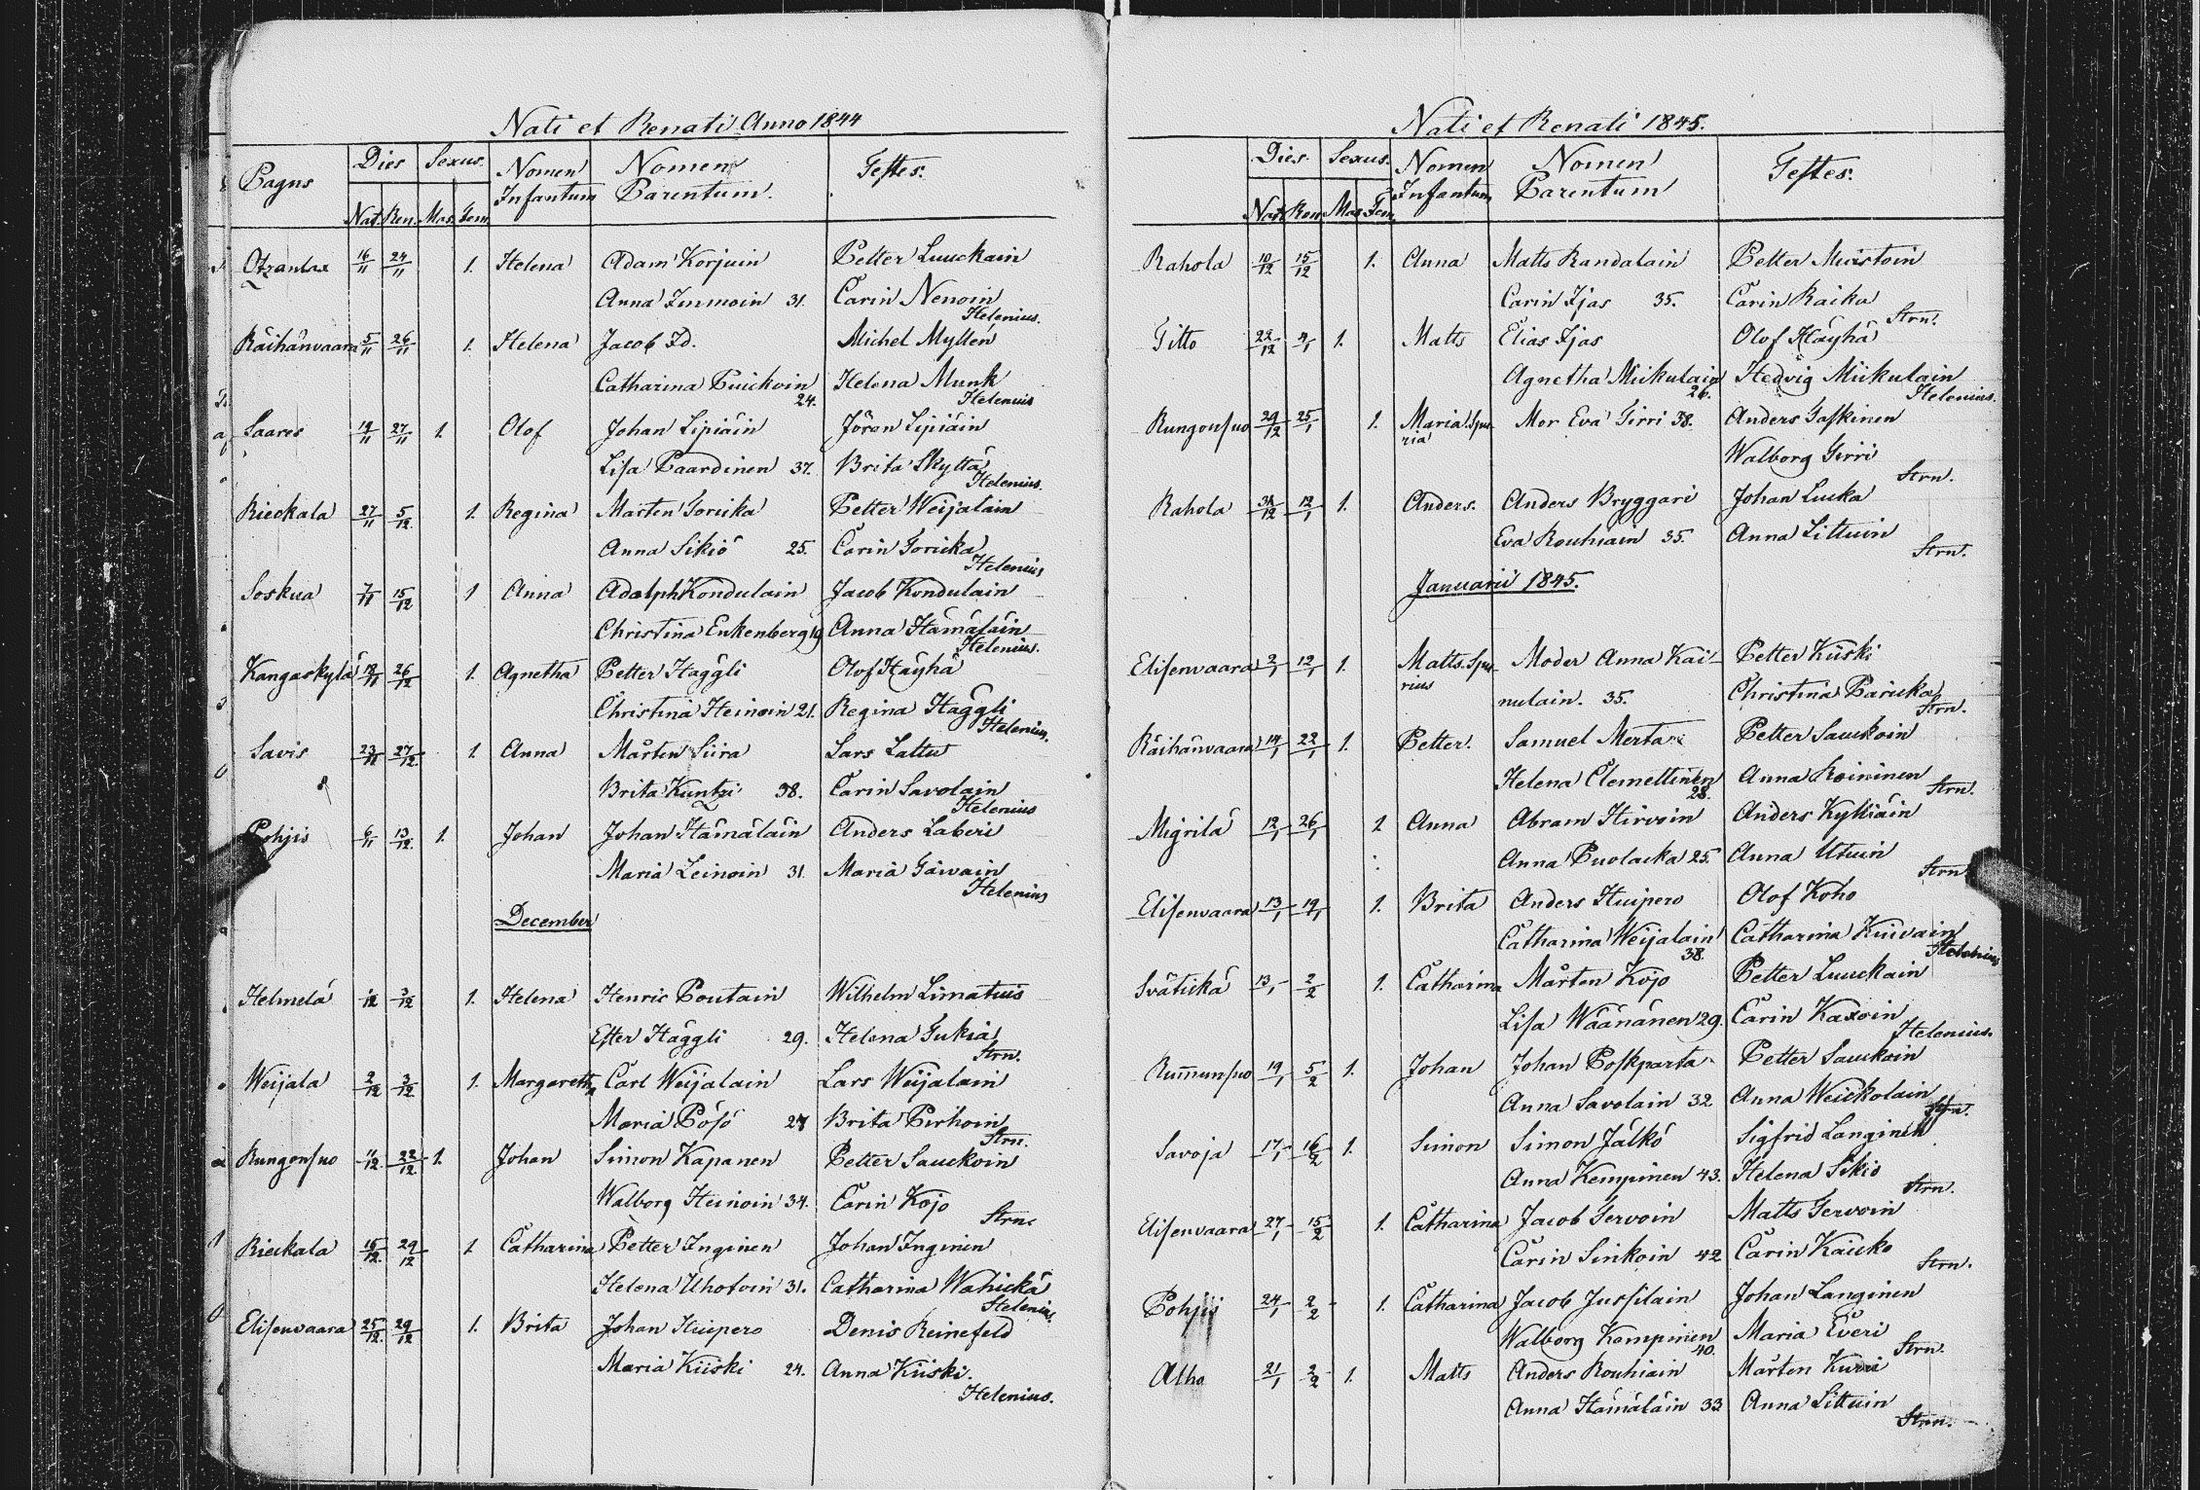 Nati et Renati Anno 1844
Pagus Dies Sexus. Nomen Infantum Nomen Parentum. Testes.
Nat. Ren. Mas. Fem.
16/11 24/11 1. Helena Adam Korjuin Petter Luuckain
Anna Immoin 31. Carin Nenoin
Helenius.
Räihänvaara 5/11 26/11 1. Helena Jacob Id. Michel Myllen
Catharina Puickoin 24. Helena Munk
Helenius
Saares 19/11 27/11 1. Olof Johan Lipiäin Jöran Lipiäin
Lisa Paardinen 37. Brita Skyttä
Helenius.
Rieckala 27/11 5/12 1. Regina Mårten Torikka Petter Weijalain
Anna Sikiö 25. Carin Torikka
Helenius
Soskua 7/11 15/12 1 Anna Adolph Kondulain Jacob Kondulain
Christina Enkenberg 19 Anna Hämäläin
Helenius.
Kangaskylä 26/12 1. Agnetha Petter Häggli Olof Häyhä
Christina Heinoin 21. Regina Häggli
Helenius.
Savis 23/11 27/12 1. Anna Mårten Siira Lars Lattu
Brita Kuntzi 38. Carin Savolain
Helenius
Pohjis 6/11 13/12 1. Johan Johan Hämäläin Anders Laberi
Maria Leinoin 31. Maria Gäiväin
Helenius
December
Helmelä 3/12 1. Helena Henric Poutain Wilhelm Limatuis
Ester Häggli 29. Helena Tukia
Strn.
Weijala 2/12 3/12 1. Margareta Carl Weijalain Lars Weijalain
Maria Pösö 27 Brita Pirhoin
Strn.
Rungonsuo 11/12 22/12 1. Johan Simon Kapanen Petter Sauckoin
Walborg Heinoin 34. Carin Kojo
Strn.
Rieckala 15/12 29/12 1 Catharina Petter Inginen Johan Inginen
Helena Uhotoin 31. Catharina Wahickä
Helenius.
Elisenvaara 25/12 29/12 1. Brita Johan Huipero Denis Reinefeld
Maria Kiiski 24. Anna Kiiski.
Helenius.
Nati et Renati 1845.
Dies. Sexus. Nomen Infantum Nomen Parentum Testes.
Nat. Ren. Mas Fem.
Rahola 10/12 15/12 1. Anna Matts Randalain Petter Muistoin
Carin Ijas 35. Carin Raika
Strn.
Titto 22/12 1. Matts Elias Ijas Olof Häyhä
Agnetha Mikulain 26. Hedvig Mikulain
Helenius.
Rungonsuo 29/12 25/1 1. Maria Spu-
ria Mor Eva Tirri 38. Anders Taskinen
Walborg Tirri
Strn.
Rahola 31/12 12/1 1. Anders. Anders Bryggari Johan Lucka
Eva Rouhiain 35. Anna Littuin
Strn.
Januarii 1845.
Elisenvaara 2/1 12/1 1. Matts. Spu-
rius Moder Anna Kai- Petter Kiiski
nulain. 35. Christina Paricka
Strn.
Räihänvaara 14/1 22/1 1. Petter. Samuel Merta Petter Sauckoin
Helena Clemettinen 28. Anna Roininen
Strn.
Migrilä 12/1 26/1 1 Anna Abram Hirvoin Anders Kylliäin
Anna Puolacka 25. Anna Utuin
Strn
Elisenvaara 13/1 19/1 1. Brita Anders Huipero Olof Koho
Catharina Weijalain 38. Catharina Kuivain
Helenius
Svätickä 13/1 2/2 1. Catharina Mårten Kojo Petter Luuckain
Lisa Wäänänen 29. Carin Kaxoin
Helenius.
Rumunsuo 19/1 5/2 1. Johan Johan Poskparta Petter Sauckoin
Anna Savolain 32 Anna Weickolain
Strn.
Savoja 17/1 16/2 1. Simon Simon Jälkö Sigfrid Langinen
Anna Kempinen 43. Helena Sikiö
Strn.
Elisenvaara 27/1 15/2 1. Catharina Jacob Tervoin Matts Tervoin
Carin Sinkoin 42 Carin Kaicko
Strn.
Pohjis 24/1 2/2 1. Catharina Jacob Jussilain Johan Langinen
Walborg Kempinen 40. Maria Everi
Strn.
Alho 21/1 2/2 1. Matts Anders Rouhiain Mårten Kurri
Anna Hämäläin 33 Anna Littuin
Strn.